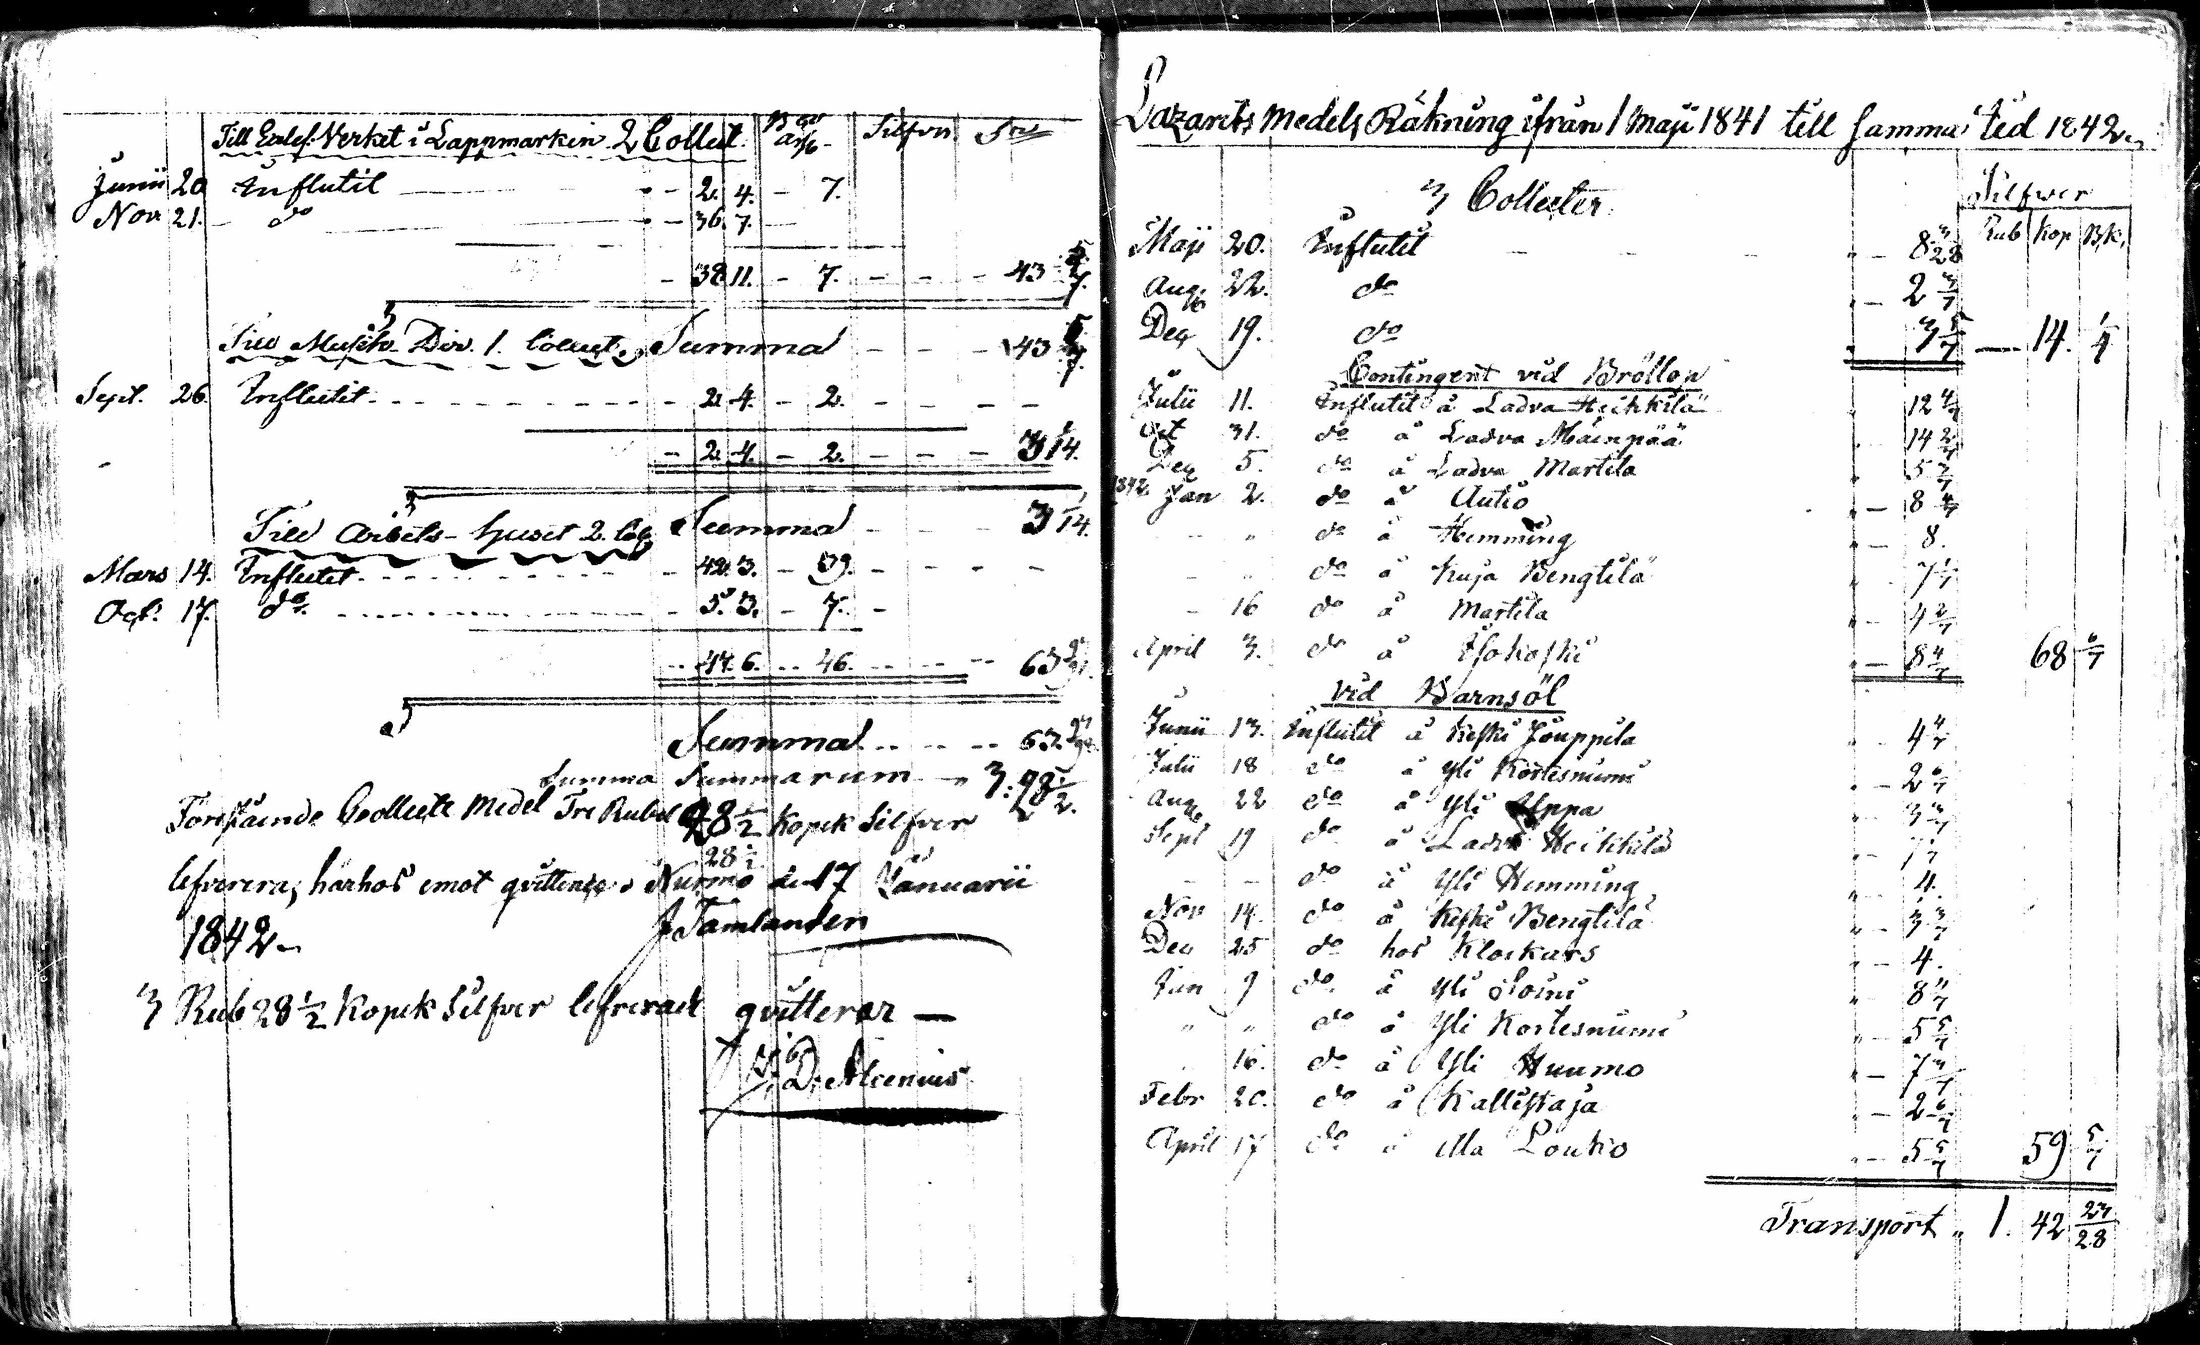 Till Eccles. Verket i Lappmarken 2 Collect. Silfver
Junii 20 Influtit 2. 4. 7.
Nov 21. do 36. 7.
38 11. 7. 43 5/7.
Till Missions Div. 1. Collect. Summa 43 5/7
Sept. 26. Influtit 2. 4. 2.
2. 4. 2. 3 1/14.
Till Arbets-huset 2. Col. Summa 3 1/14.
Mars 14. Influtit 42. 3. 39.
Oct. 17. do 5. 3. 7.
47. 6. 46. 63
Summa 63.
Summa Summarum 3: 28 1/2.
Förestående Collecte Medel Tre Rubel 28 1/2 Kopek Silfver
28 1/2
lefvereras härhos emot qvittence. Nurmo den 17 Januarii
1842. J Tamlander
3 Rub 28 1/2 Kopek Silfver lefvererade qvitterar
D. Alcenius
Lazarets Medels Räkning ifrån 1 Maji 1841 till samma tid 1842.
3 Collecter Silfver
Rub Kop Bk.
Maji 20. Influtit 8 3/28
Aug. 22. do 2 3/7
Dec 19. do 3 5/7 14. 1/4
Contingent vid Bröllop
Julii 11. Influtit å Ladva Heikkilä 12 4/7
Oct 31. do å Ladva Mäenpää 14 2/7
Dec 5. do å Ladva Martila 5 5/7
1842 Jan 2. do å Autio 8 4/7
" do å Hemming 8.
" do å Kuja Bengtilä 7 1/7
16 do å Martila 4 2/7
April 3. do å Isokoski 8 4/7 68 6/7
vid Barnsöl
Junii 13. Influtit å Keski Jouppila 4 4/7
Julii 18 do å Yli Kortesniemi 2 6/7
Aug 22 do å Yli Uppa 3 3/7
Sept 19 do å Ladva Heikkilä
do å Yli Hemming 4.
Nov 14. do å Keski Bengtilä 3 3/7
Dec 25 do hos Klockars 4.
Jan 9 do å Yli Soini 8 4/7
" " do å Yli Kortesniemi 5 5/7
16. do å Yli Huumo 7 3/7
Febr 20. do å Kallistaja 2 6/7
April 17 do å Ala Louko 5 5/7 59 5/7
Transport " 1. 42 23/28